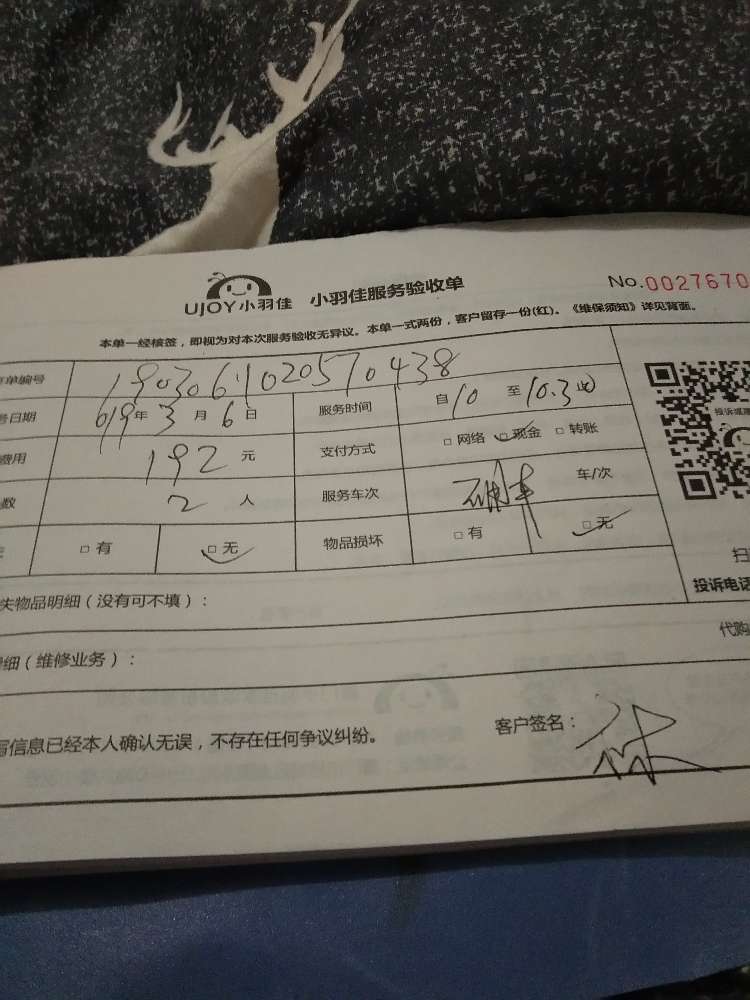 UJOY小羽佳 小羽佳服务验收单 No.0027670
本单一经核签，即视为对本次服务验收无异议。本单一式两份，客户留存一份(红)。《维保须知》详见背面。
单编号 1903061020570438
日期 019年3月6日 服务时间 自10至10.30
费用 192元 支付方式 □网络 □现金 □转账
数 2人 服务车次 车/次
□有 □无 物品损坏 □有 □无
失物品明细（没有可不填）：
投诉电话
细（维修业务）：
代购
写信息已经本人确认无误，不存在任何争议纠纷。 客户签名：